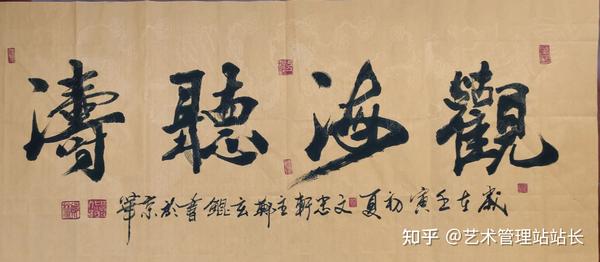 觀海聽濤
歲在壬寅初夏文忠軒主鄭玄錕書於京華
知乎 @艺术管理站站长